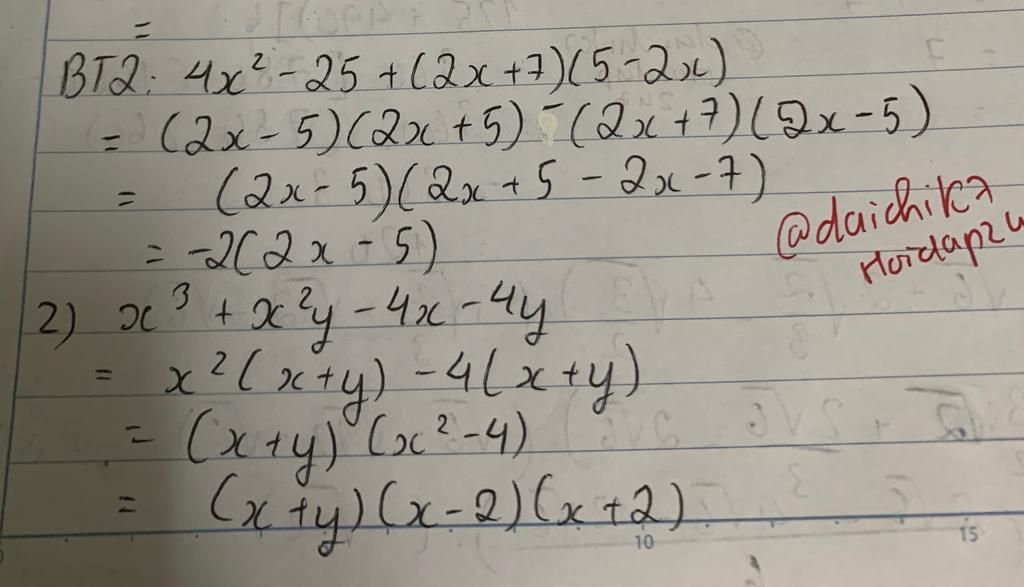 =
BT2: 4x² - 25 + (2x+7)(5-2x)
= (2x-5)(2x+5) - (2x+7)(2x-5)
= (2x-5)(2x+5-2x-7)
= -2(2x-5)
@daichik7
Hoidap24
2) x³ + x²y - 4x - 4y
= x²(x+y) - 4(x+y)
= (x+y)(x²-4)
= (x+y)(x-2)(x+2)
10 15